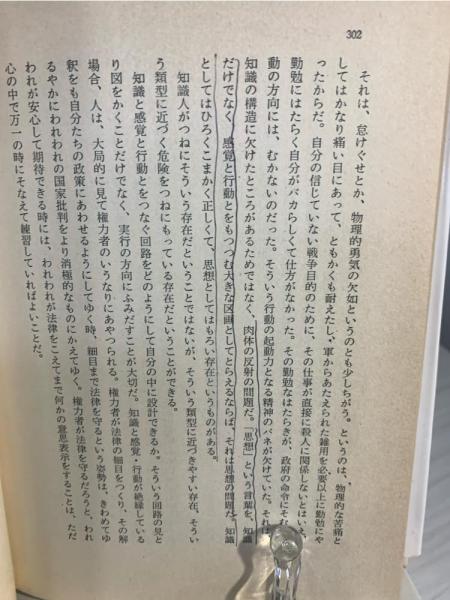 302
それは、怠けぐせとか、物理的勇気の欠如というのとも少しちがう。というのは、物理的な苦痛と
してはかなり痛い目にあって、ともかくも耐えたし、軍からあたえられた雑用を必要以上に勤勉にや
ったからだ。自分の信じていない戦争目的のために、その仕事が直接に殺人に関係しないとはいえ、
勤勉にはたらく自分がバカらしくて仕方がなかった。その勤勉なはたらきが、政府の命令にそむ
動の方向には、むかないのだった。そういう行動の起動力となる精神のバネが欠けていた。それは
知識の構造に欠けたところがあるためではなく、肉体の反射の問題だ。「思想」という言葉を、知識
だけでなく、感覚と行動とをもつつむ大きな区画としてとらえるならば、それは思想の問題だ。知識
としてはひろくこまかく正しくて、思想としてはもろい存在というものがある。
知識人がつねにそういう存在だということではないが、そういう類型に近づきやすい存在、そうい
う類型に近づく危険をつねにもっている存在だということができる。
知識と感覚と行動とをつなぐ回路をどのようにして自分の中に設計できるか。そういう回路の見と
り図をかくことだけでなく、実行の方向にふみだすことが大切だ。知識と感覚・行動が絶縁している
場合、人は、大局的に見て権力者のいうなりにあやつられる。権力者が法律の細目をつくり、その解
釈をも自分たちの政策にあわせるようにしてゆく時、細目まで法律を守るという姿勢は、きわめてゆ
るやかにわれわれの国家批判をより消極的なものにかえてゆく。権力者が法律を守るだろうと、われ
われが安心して期待できる時には、われわれが法律をこえてまで何かの意思表示をすることは、ただ
心の中で万一の時にそなえて練習していればよいことだ。